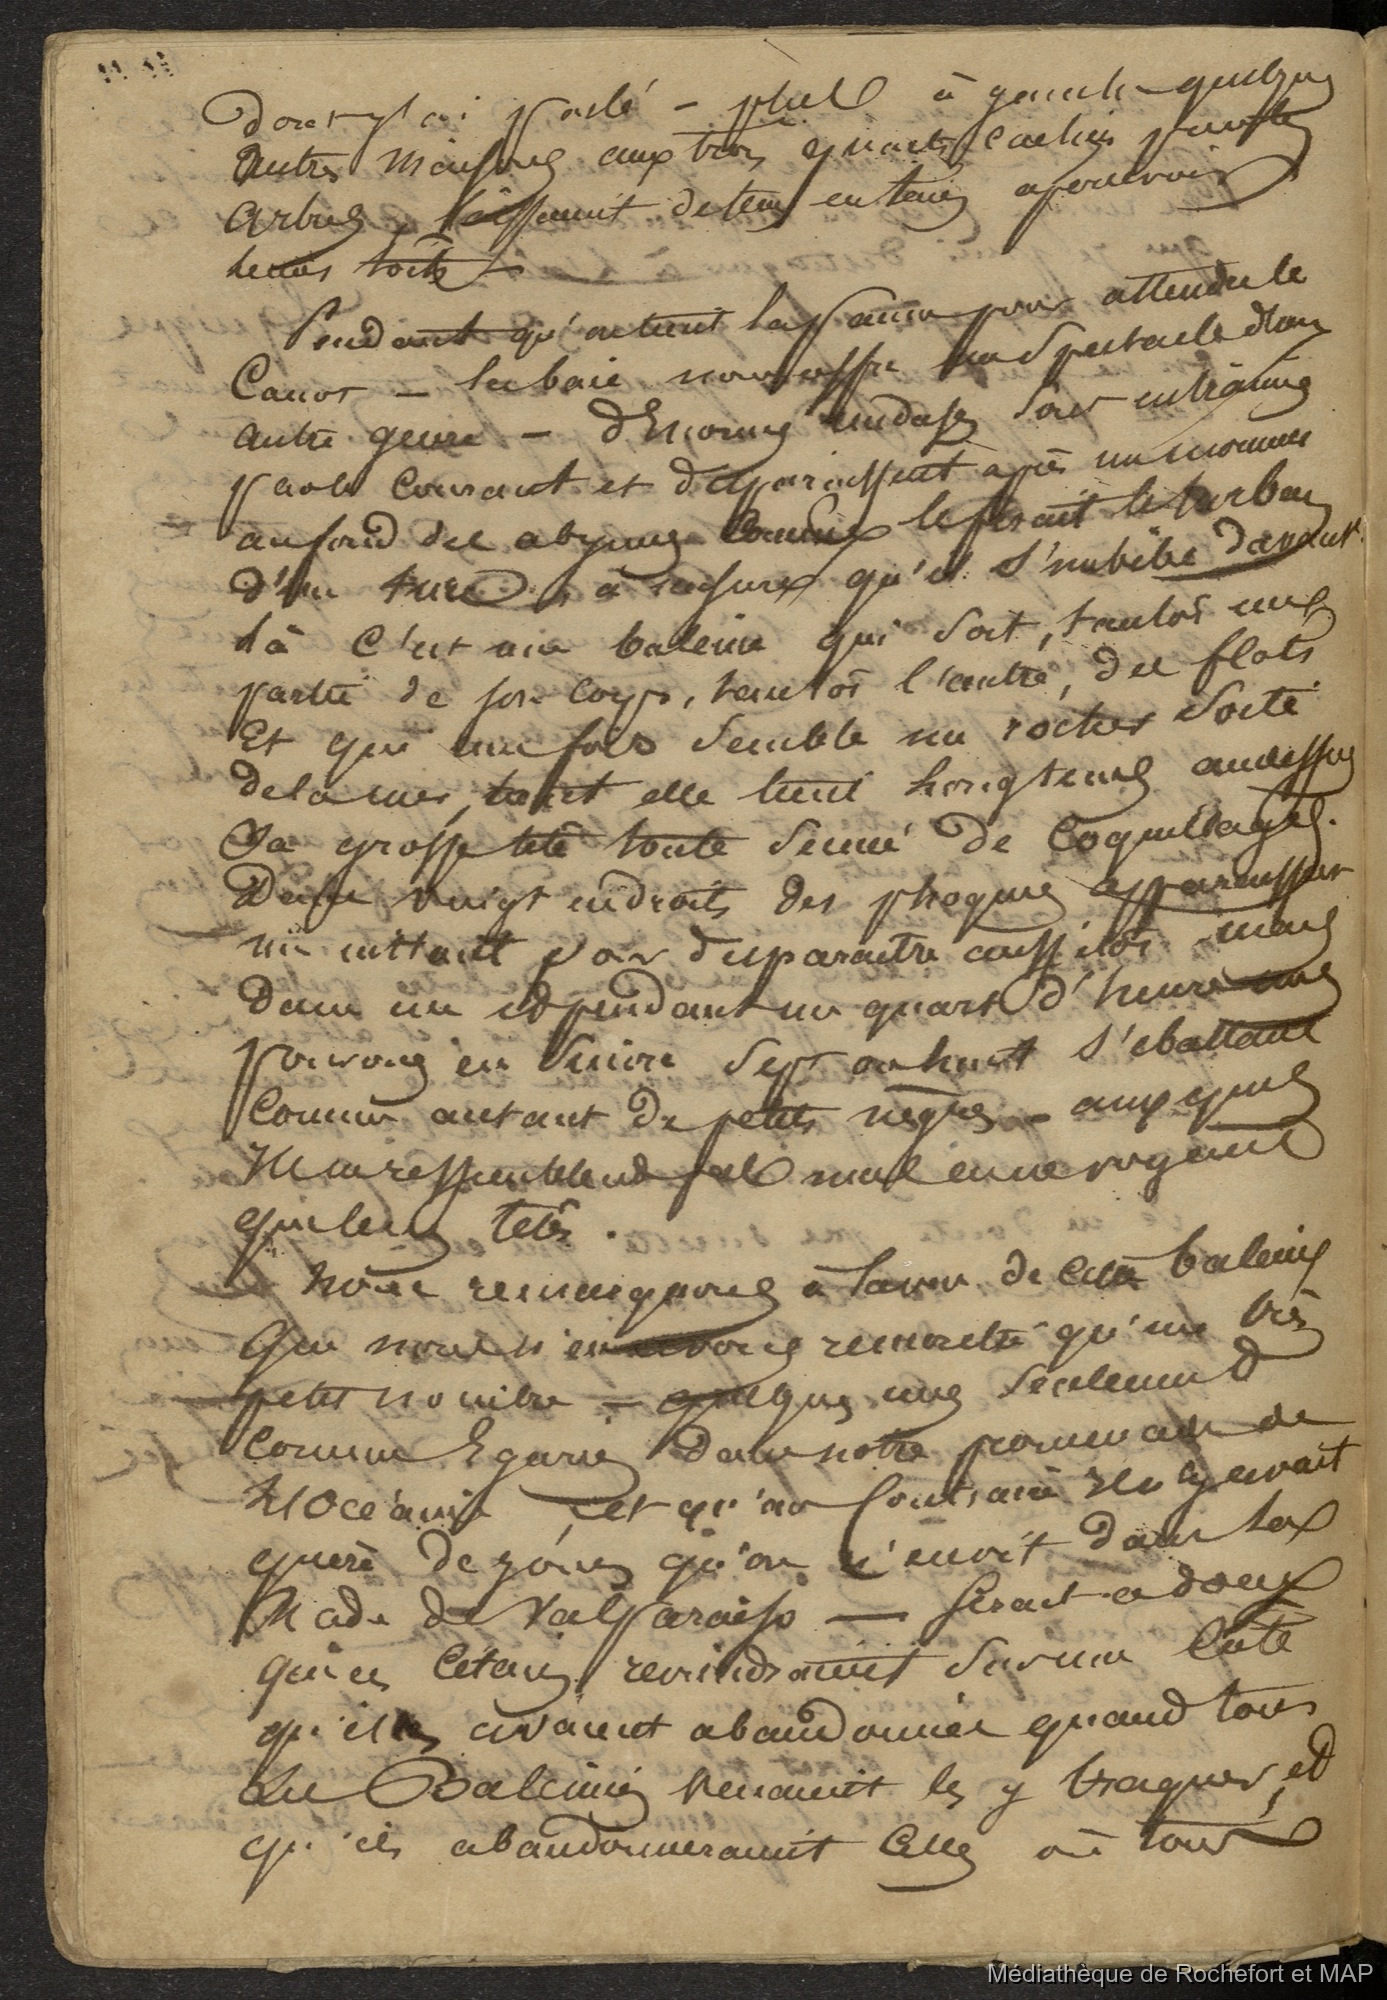 dont j'ai parlé - plus à gauche quelques
autres maisons aux trois quarts cachés par les
arbres, laissaient de tems en tems apercevoir
leurs toits -
Pendant qu'on tient la panne pour attendre le
Canot - la baie nous offre un spectacle d'un
autre genre - d'Enormes méduses sont entrainés
par le courant et disparaissent après un moment
au fond des abymes comme le ferait le turban
d'un turc, à mesure qu'il s'imbibe davant.
là c'est une baleine qui sort, tantôt une
partie de son corps, tantôt l'autre, des flots
Et qui une fois semble un rocher sorti
de la mer, tant elle tient longtems audessus
Sa grosse tête toute semé de coquillages.
Dans vingt endroits des phoques apparaissent
un instant pour disparaitre aussitôt - nous
dans un et pendant un quart d'heure nous
pouvons en suivre sept ou huit s'ebattant
Comme autant de petits nègres - auxquels
Ils ne ressemblent pas mal en ne voyant
que leurs tetês.
Nous remarquons à la vue de cette baleine
Que nous n'en avons rencontré qu'un très
petit nombre - quelques unes seulement
Comme Egarées dans notre promenade de
l'Océanie, et qu'au Contraire Il n'y avait
guere de jours qu'on n'en vit dans la
Rade de Valparaiso - serait-a doux
que ces Cétaces reviendraient sur une Côte
qu'elles avaient abandonnée quand tous
les Baleiniers venaient les y traquer, et
qu'ils abandonneraient celles où tous